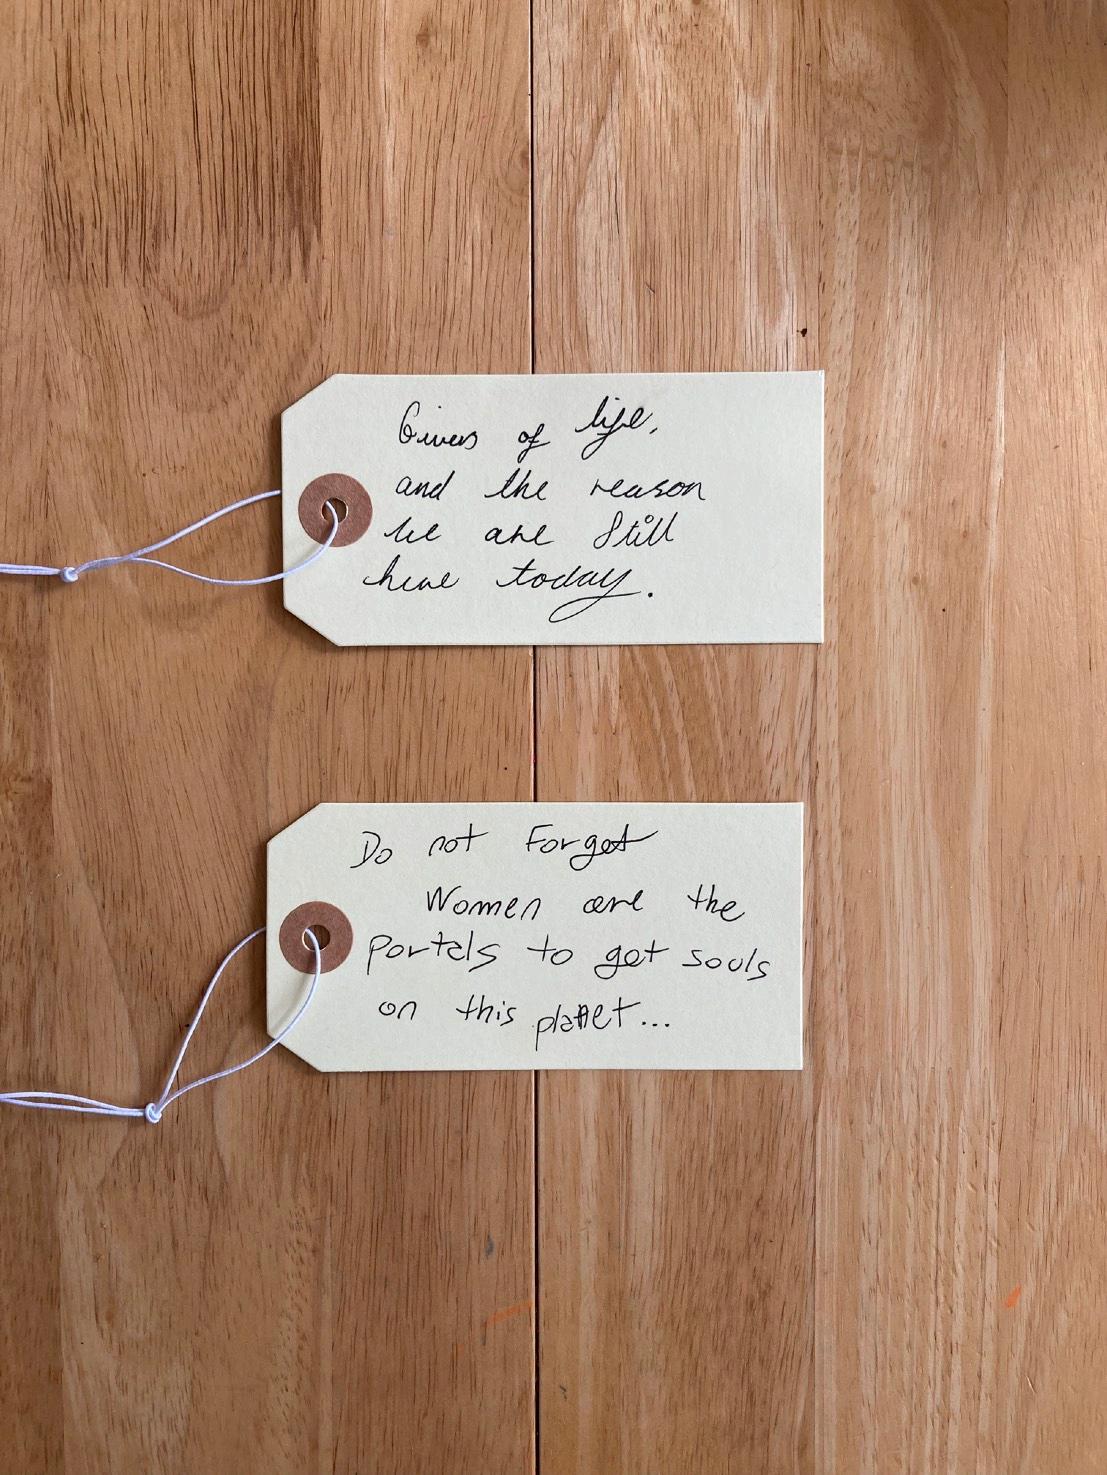 Givers of life,
and the reason
we are Still
here today.
Do not Forget
Women are the
portals to get souls
on this planet...